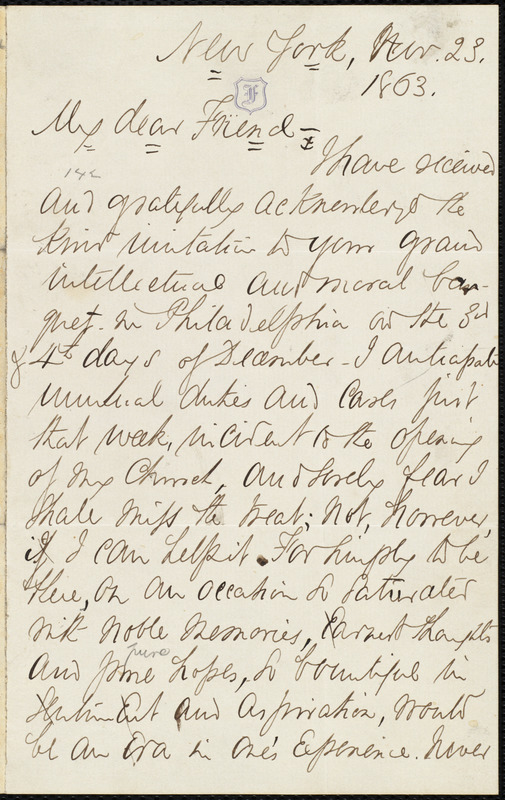 New York, Nov. 23.
1863.
F
My dear Friend -
I have received
and gratefully acknowledge the
kind invitation to your grand
intellectual and moral ban-
quet in Philadelphia on the 3rd
& 4th days of December - I anticipate
unusual duties and cares just
that week, incident to the opening
of my Church, and sorely fear I
shall miss the treat; not, however,
if I can help it. For simply to be
there, on an occasion so saturated
with noble memories, earnest thoughts
pure
and pure hopes, so bountiful in
sentiment and aspiration, would
be an era in one's experience. Never